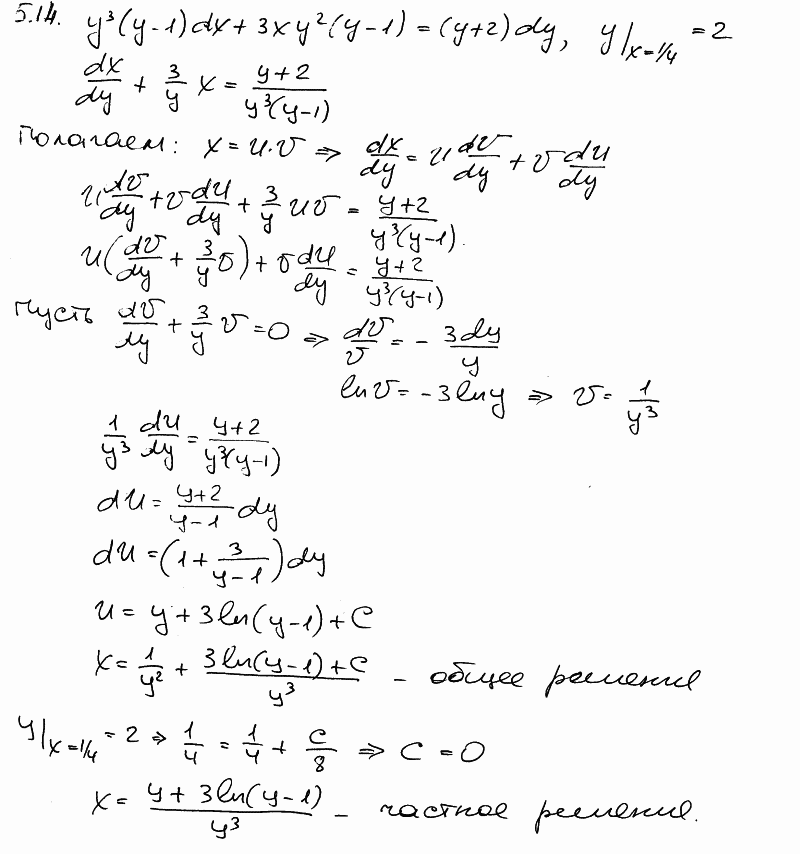 5.14. y³(y-1)dx + 3xy²(y-1) = (y+2)dy, y|ₓ₌₁/₄ = 2
dx/dy + 3/y x = (y+2)/(y³(y-1))
Полагаем: x = u·v ⇒ dx/dy = u dv/dy + v du/dy
u dv/dy + v du/dy + 3/y uv = (y+2)/(y³(y-1)).
u(dv/dy + 3/y v) + v du/dy = (y+2)/(y³(y-1))
Пусть dv/dy + 3/y v = 0 ⇒ dv/v = - 3dy/y
ln v = -3 ln y ⇒ v = 1/y³
1/y³ du/dy = (y+2)/(y³(y-1))
du = (y+2)/(y-1) dy
du = (1 + 3/(y-1)) dy
u = y + 3ln(y-1) + C
x = 1/y² + (3ln(y-1) + C)/y³ - общее решение
y|ₓ₌₁/₄ = 2 ⇒ 1/4 = 1/4 + C/8 ⇒ C = 0
x = (y + 3ln(y-1))/y³ - частное решение.